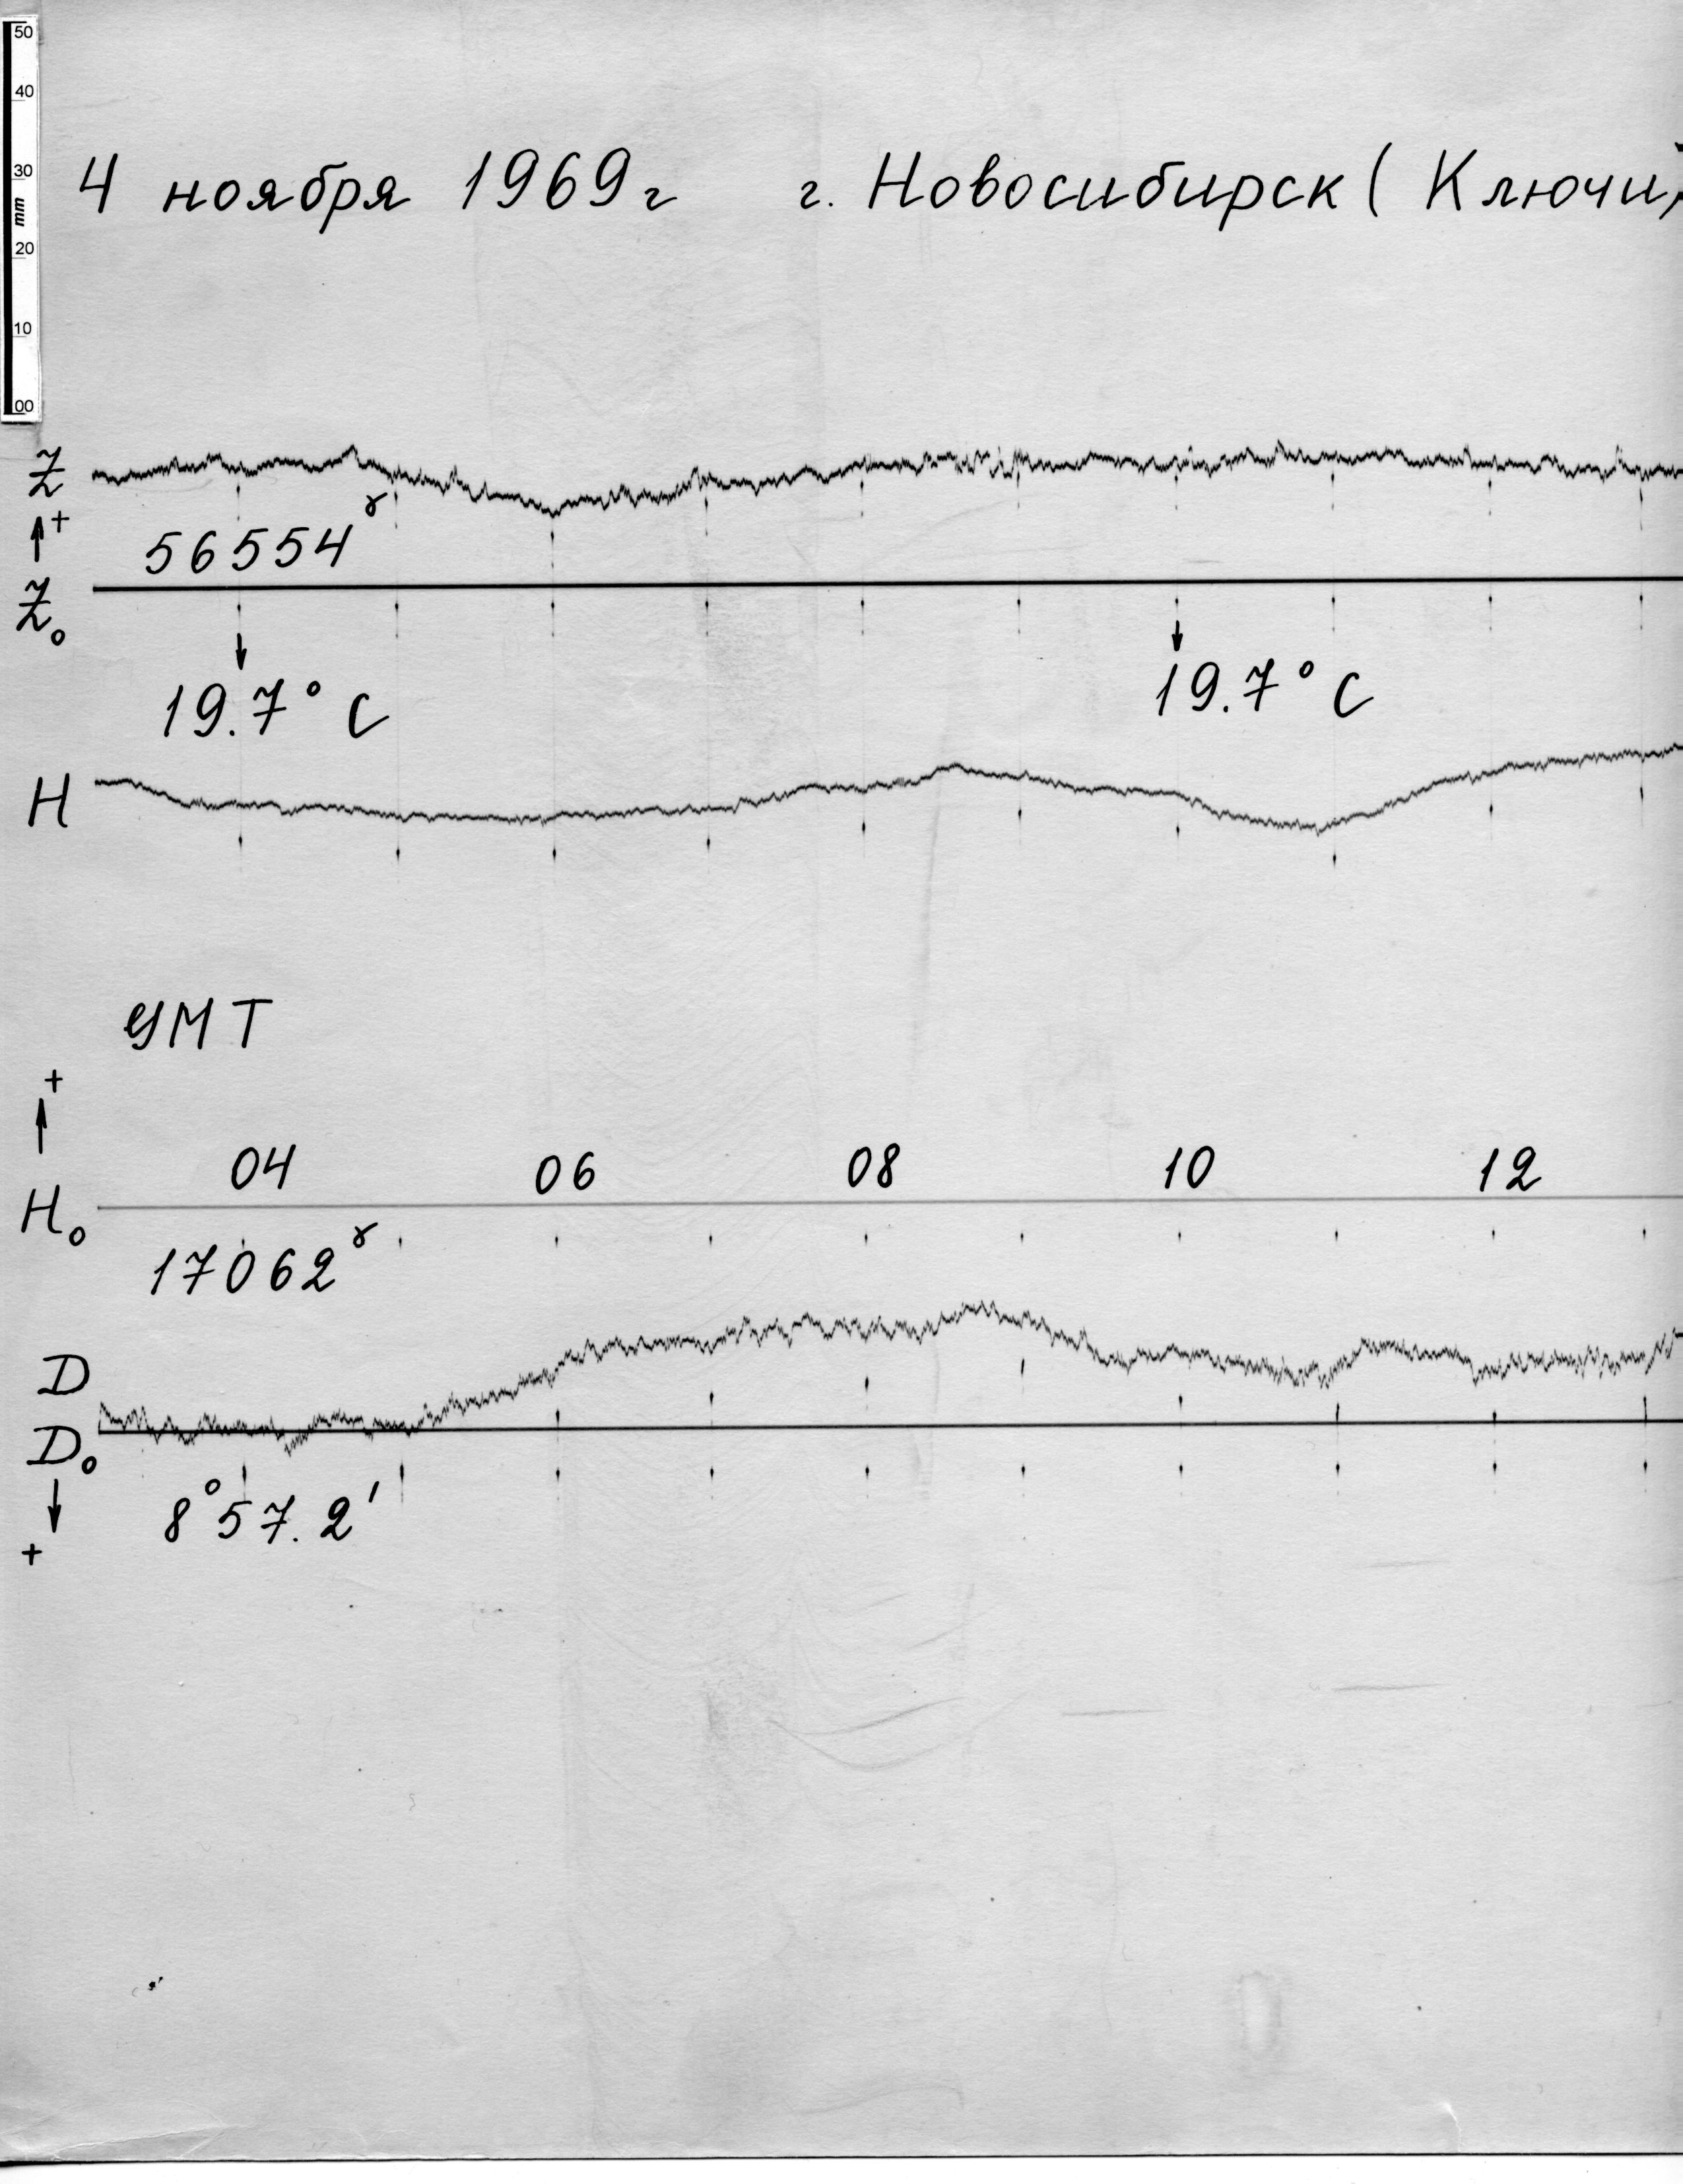 50
40
30
mm
20
10
00
4 ноября 1969 г г. Новосибирск ( Ключи)
Z
+
56554γ
Z₀
19.7° C 19.7° C
H
УМТ
+
04 06 08 10 12
H₀
17062γ
D
D₀
8°57.2′
+